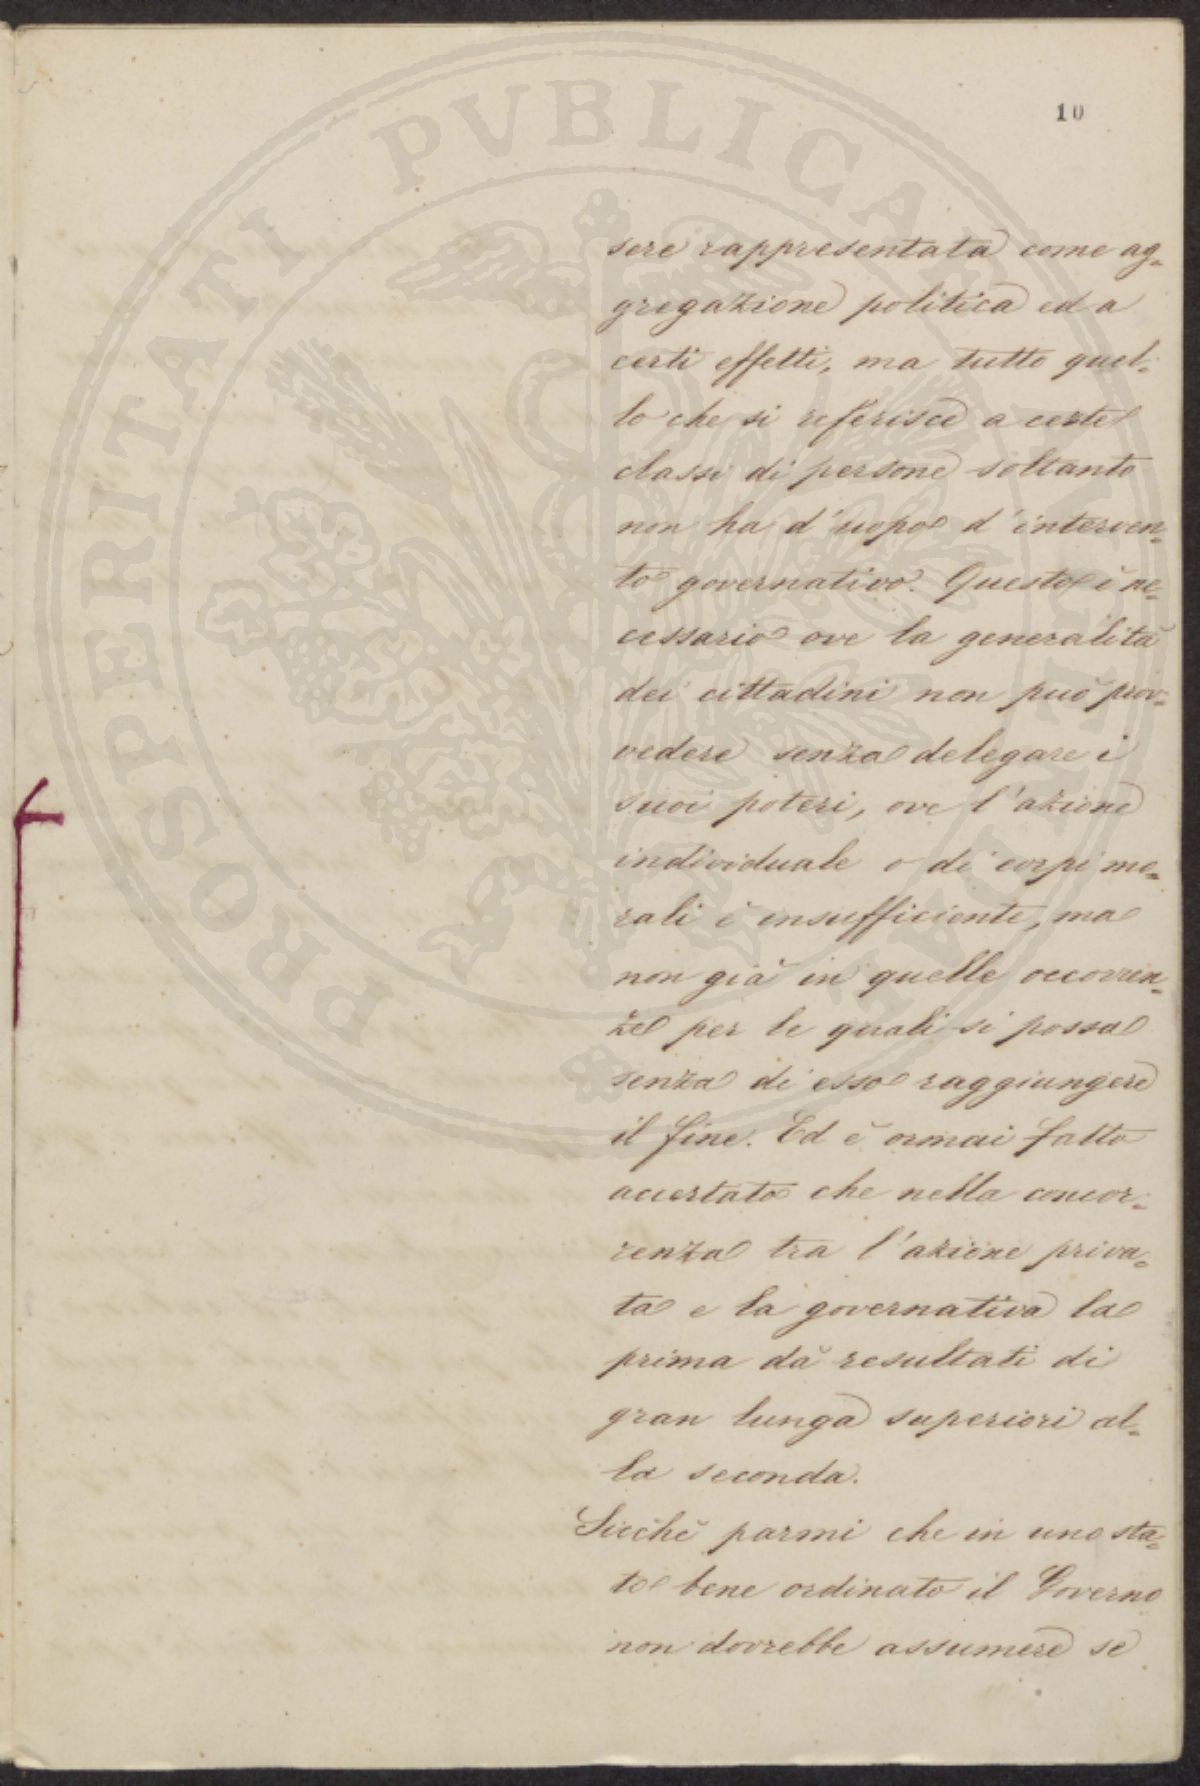 10
sere rappresentata come ag=
gregazione politica ed a
certi effetti, ma tutto quel=
lo che si riferisce a certe
classi di persone soltanto
non ha d'uopo d'interven=
to governativo. Questo è ne=
cessario ove la generalità
dei cittadini non può prov=
vedere senza delegare i
suoi poteri, ove l'azione
individuale o di corpi mo=
rali è insufficiente, ma
non già in quelle occorren=
ze per le quali si possa
senza di esso raggiungere
il fine. Ed è ormai fatto
accertato che nella concor=
renza tra l'azione priva=
ta e la governativa la
prima dà resultati di
gran lunga superiori al=
la seconda.
Sicchè parmi che in uno sta=
to bene ordinato il Governo
non dovrebbe assumere se
PROSPERITATI PVBLICAE